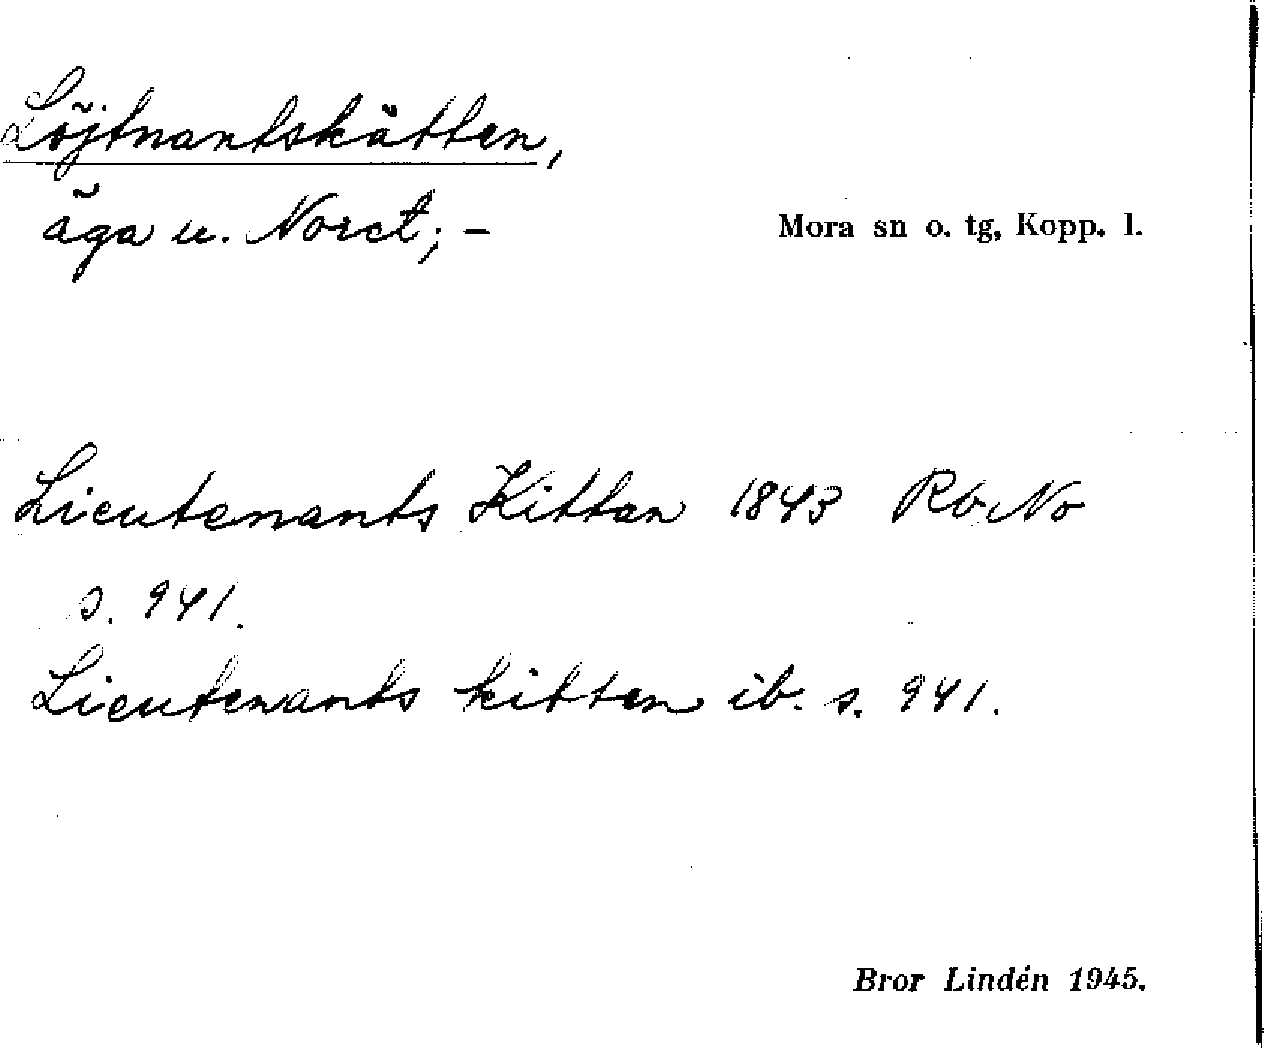 Löjtnantskätten,
äga u. Noret; -
Mora sn o. tg, Kopp. l.
Lieutenants Kittan 1843 Rb No
s. 941.
Lieutenants kitten ib. s. 941.
Bror Lindén 1945.